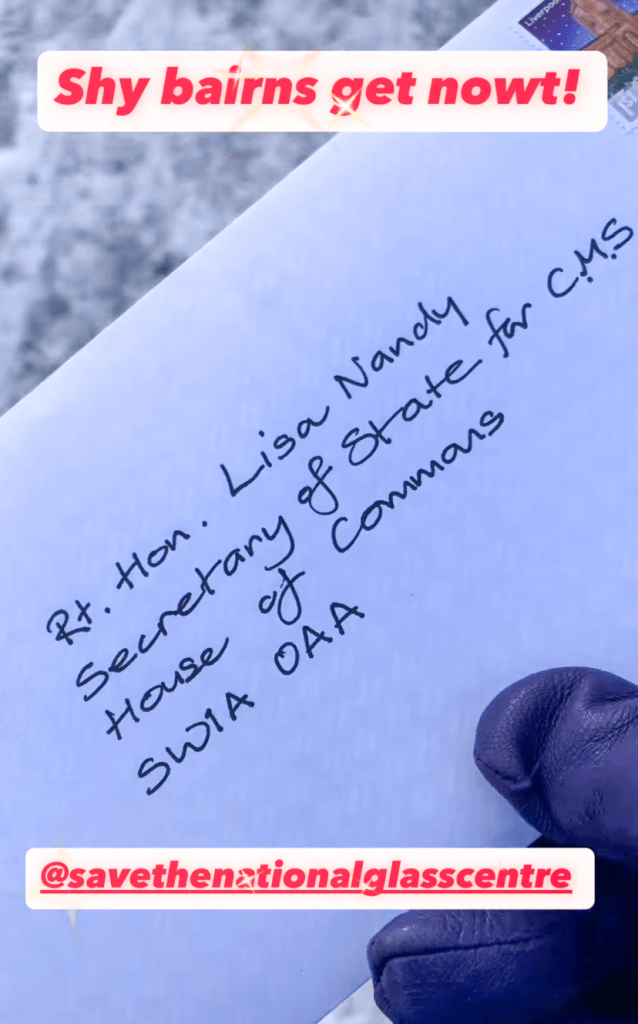 Liverpoo
Shy bairns get nowt!
Rt. Hon. Lisa Nandy
Secretary of State for C.M.S
House of Commons
SW1A 0AA
@savethenationalglasscentre